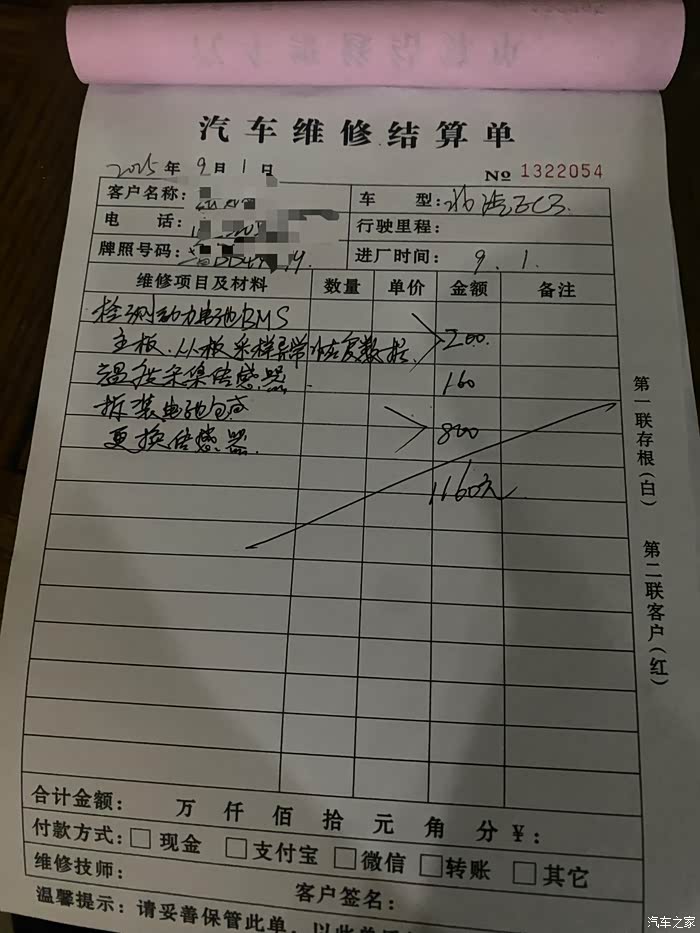 汽车维修结算单
2025年 9月 1日
№ 1322054
客户名称：
车 型：北汽EC3
电 话：
行驶里程：
牌照号码：
进厂时间：9.1.
维修项目及材料 数量 单价 金额 备注
检测动力电池BMS
主板.从板采样异常恢复数据. 200.
采集传感器 160
拆装电池包 800
更换传感器.
1160元
第一联存根(白)
第二联客户(红)
合计金额： 万 仟 佰 拾 元 角 分 ￥：
付款方式：□现金 □支付宝 □微信 □转账 □其它
维修技师：
客户签名：
温馨提示：请妥善保管此单，以此单
汽车之家